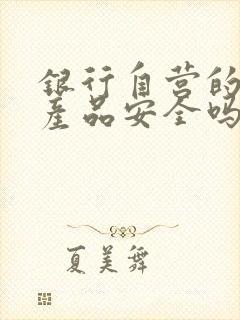 银行自营的
产品安全吗
夏美舞